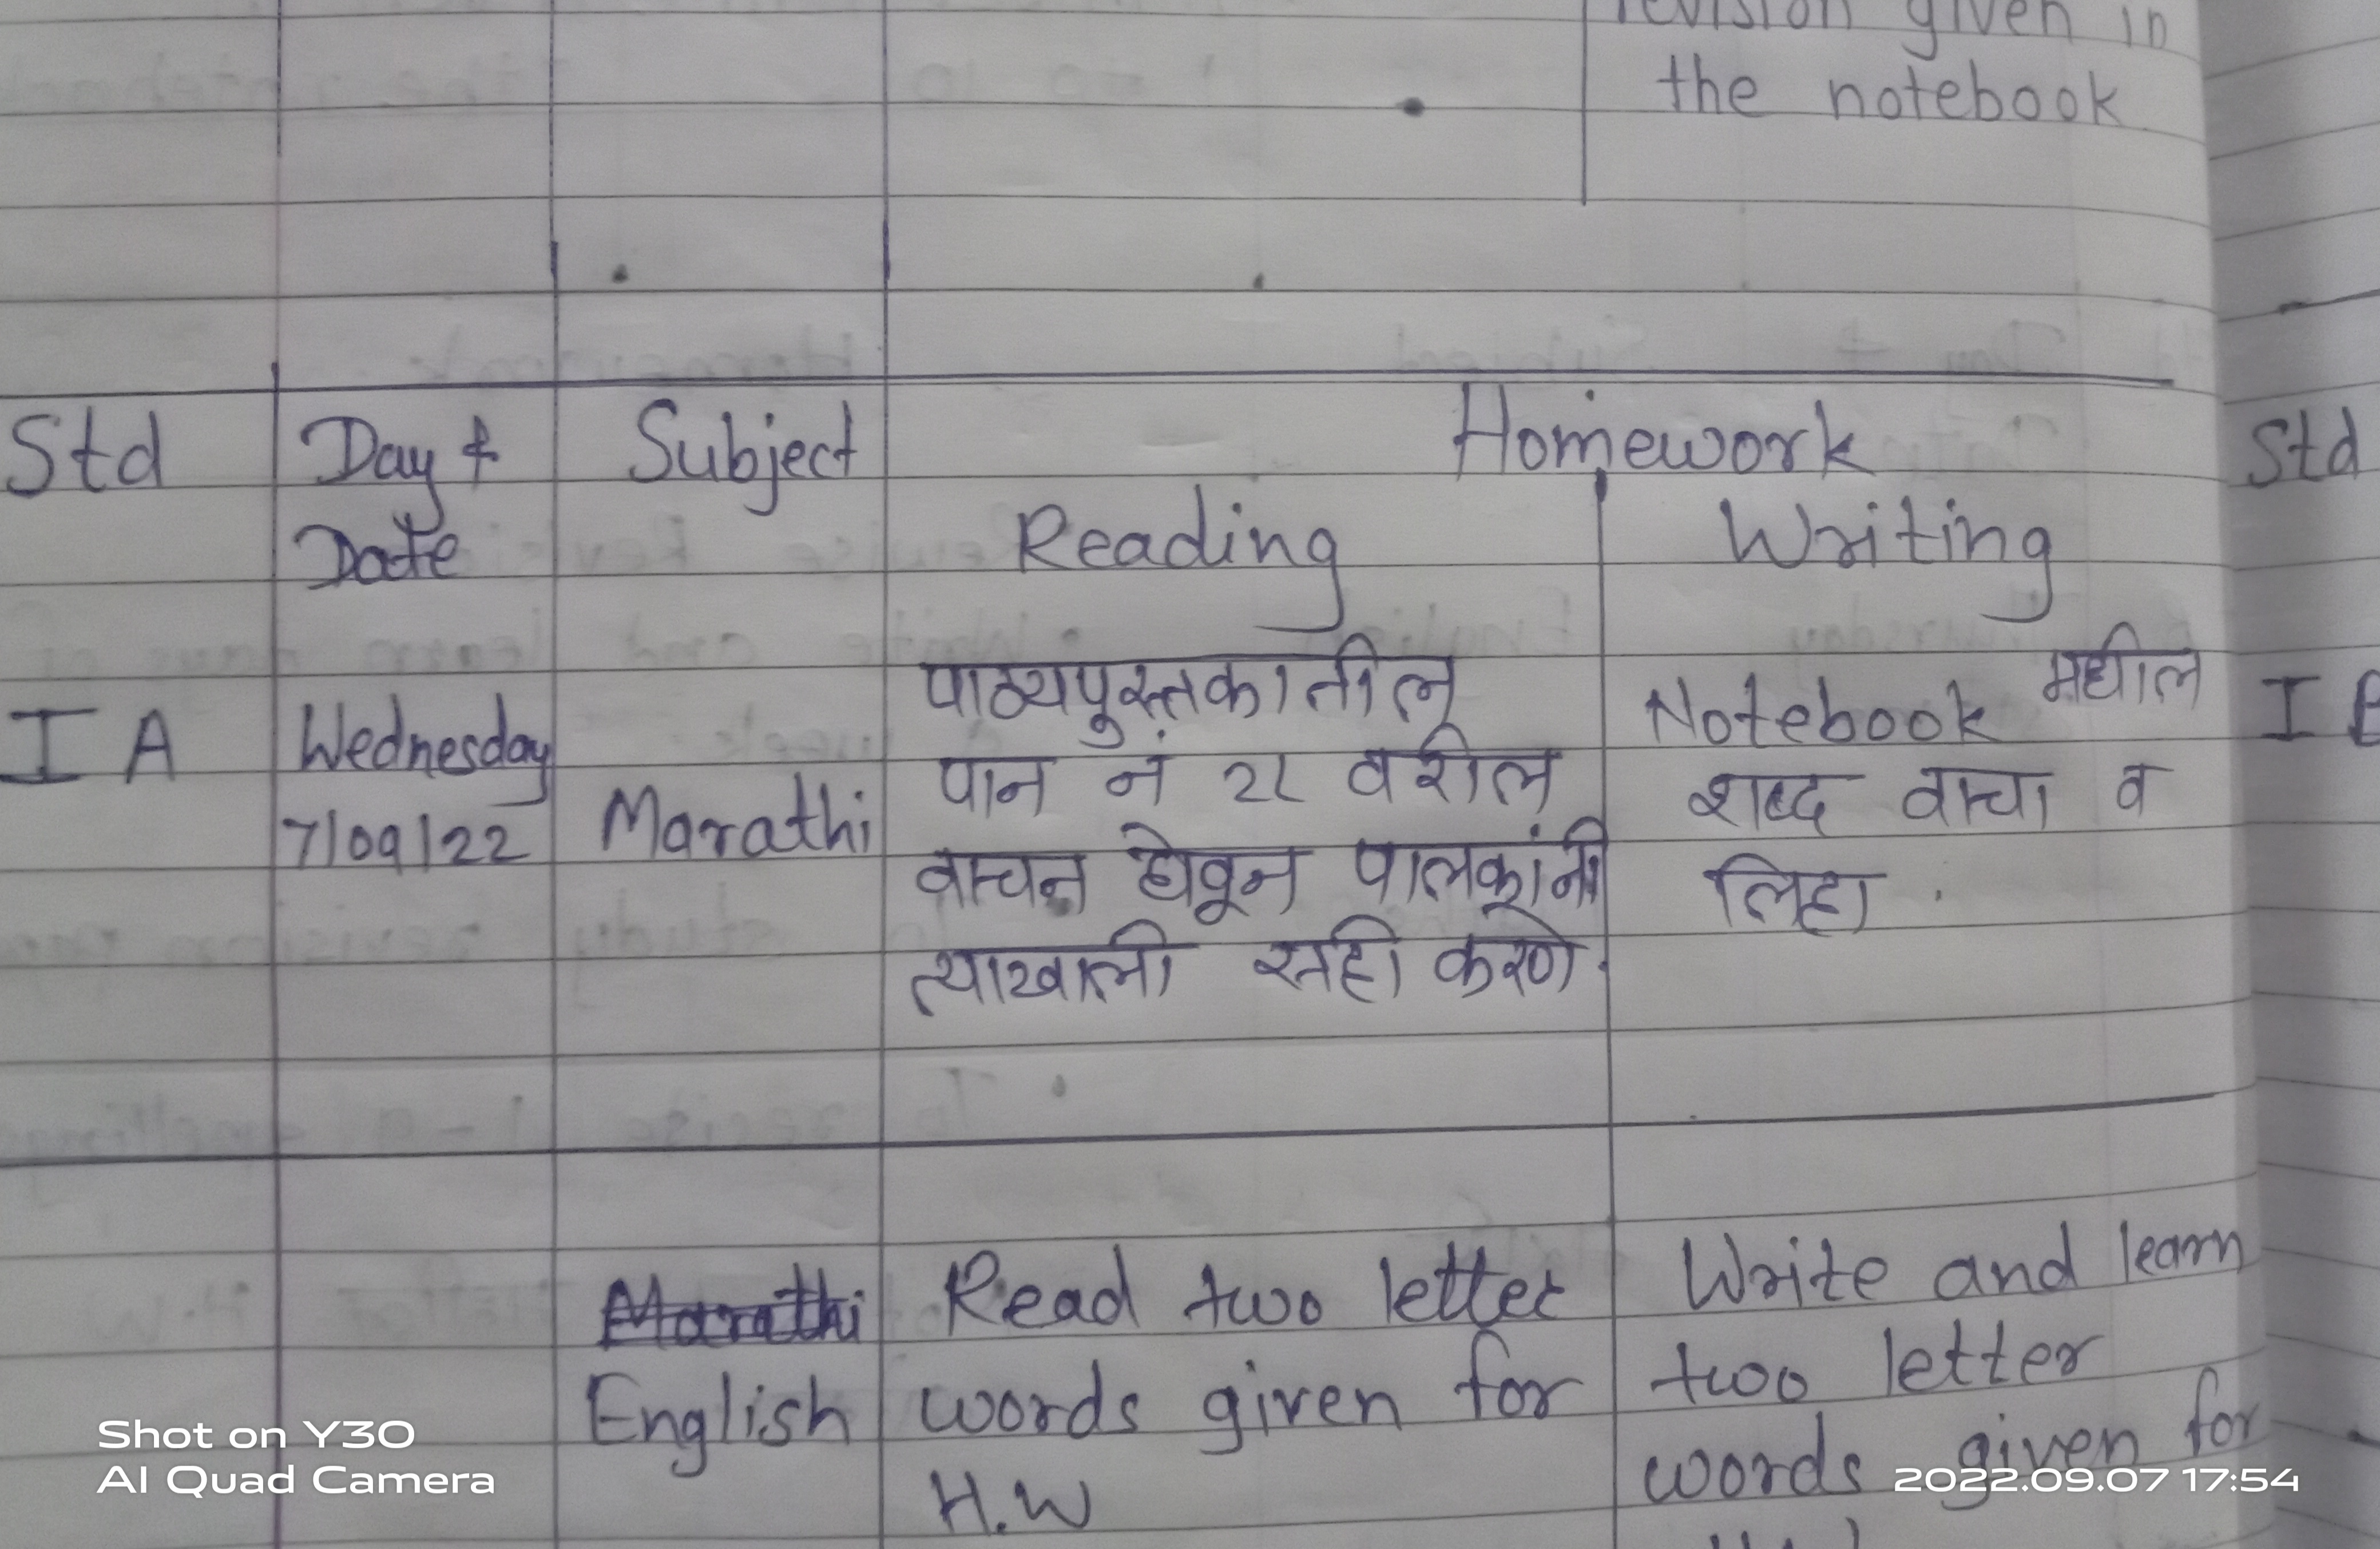 revision given in
the notebook
Std Day & Subject Homework
Date Reading Writing
I A Wednesday
7/09/22 Marathi
पाठ्यपुस्तकातील
पान नं २८ वरील
वाचन घेवून पालकांनी
त्याखाली सही करणे.
Notebook मधील
शब्द वाचा व
लिहा.
Marathi
English
Read two letter
words given for
H.W
Write and learn
two letter
words given for
Std
I
Shot on Y30
AI Quad Camera
2022.09.07 17:54